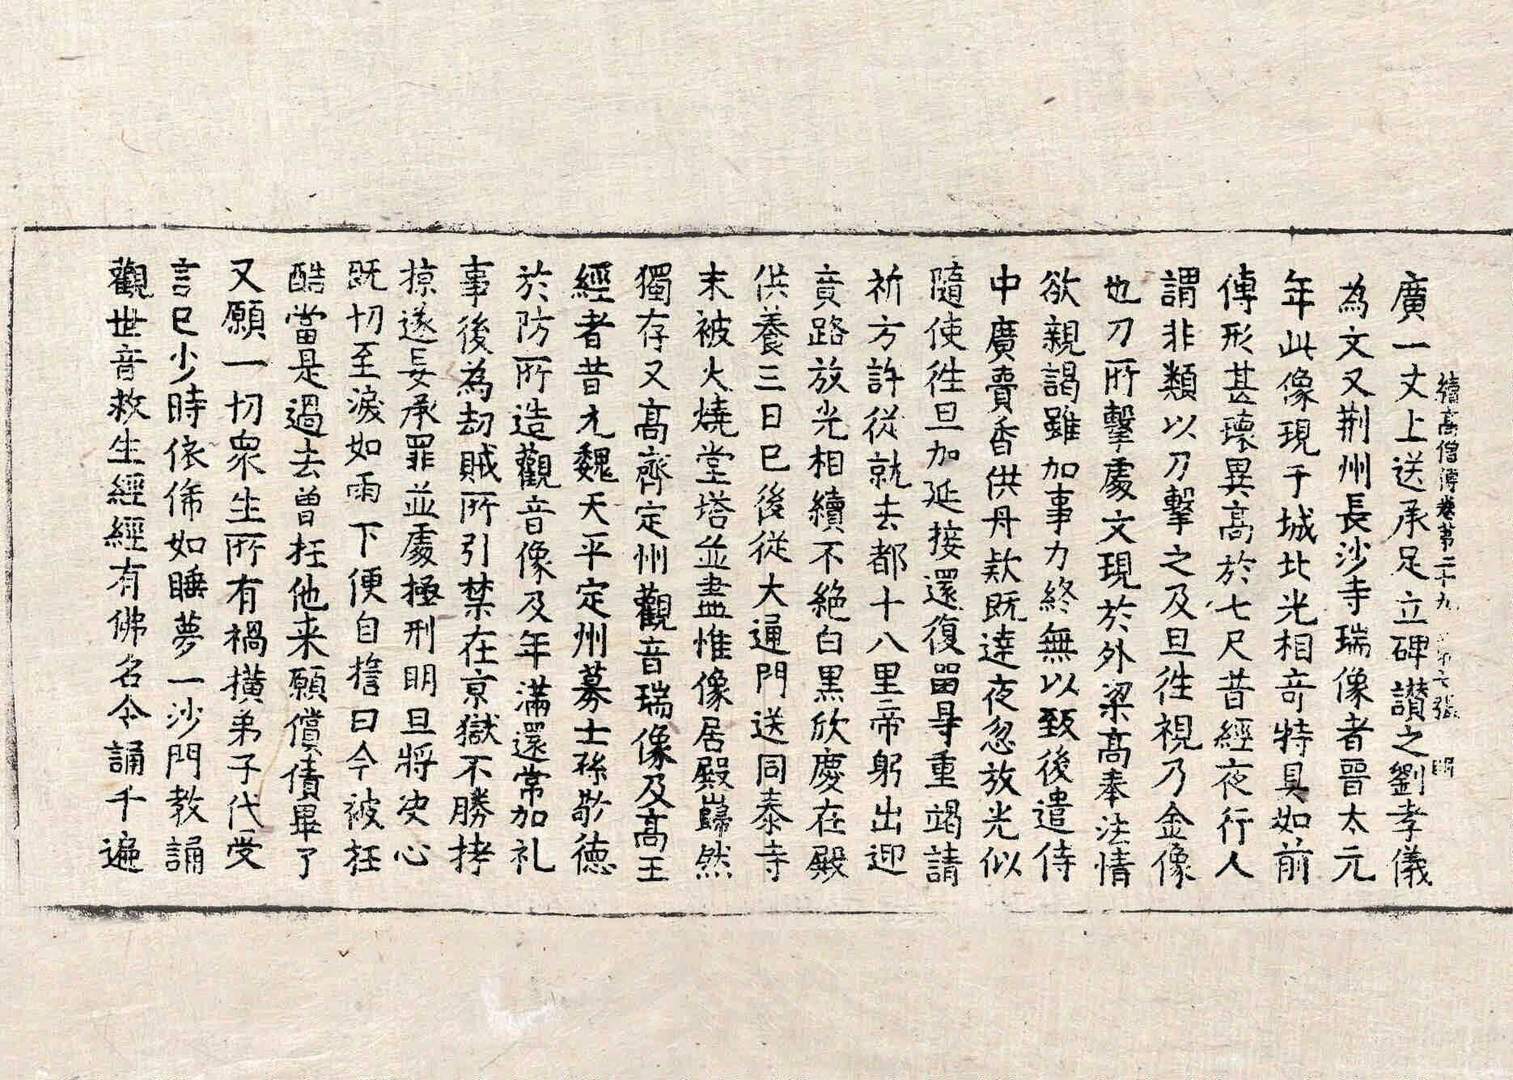 續高僧傳卷第二十九 第六張 明
廣一丈上送承足立碑讃之劉孝儀
為文又荆州長沙寺瑞像者晉太元
年此像現于城北光相竒特具如前
傳形甚瓌異髙於七尺昔經夜行人
謂非類以刀擊之及旦徃視乃金像
也刀所擊處文現於外梁髙奉法情
欲親謁雖加事力終無以致後遣侍
中廣賷香供丹欵既達夜忽放光似
隨使徃旦加延接還復留礙重竭請
祈方許從就去都十八里帝躬出迎
竟路放光相續不絶白黒欣慶在殿
供養三日已後從大通門送同泰寺
末被火燒堂塔並盡惟像居殿巋然
獨存又髙齊定州觀音瑞像及髙王
經者昔元魏天平定州募士孫敬德
於防所造觀音像及年滿還常加礼
事後為劫賊所引禁在京獄不勝拷
掠遂妄承罪並處極刑明旦將决心
既切至淚如雨下便自誓曰今被枉
酷當是過去曾枉他来願償債畢了
又願一切衆生所有禍橫弟子代受
言已少時依俙如睡夢一沙門教誦
觀世音救生經經有佛名令誦千遍